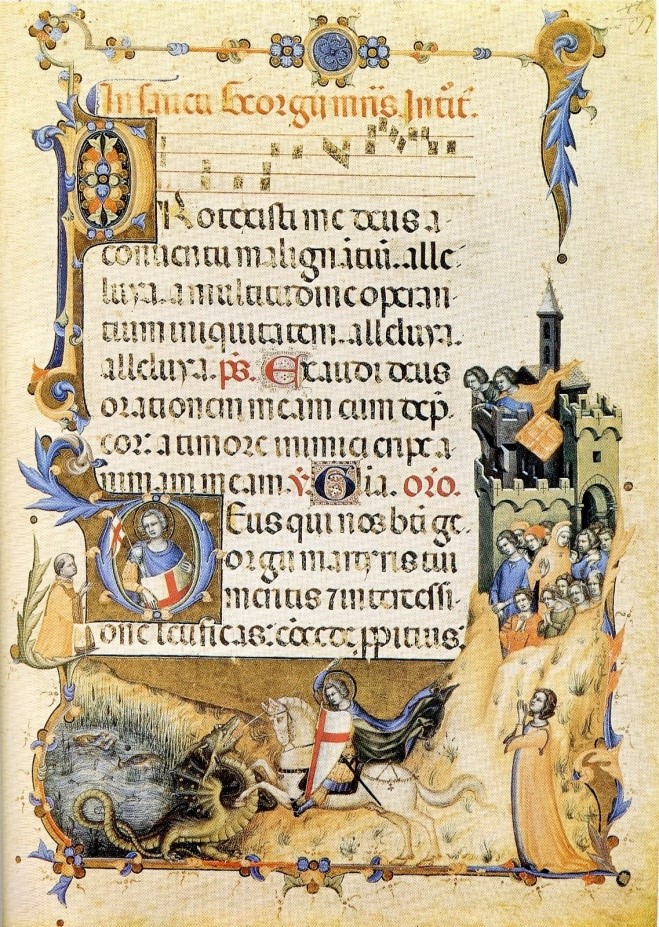 In sancti Georgii mris Intit.
PRotexisti me deus a
conuentu malignatiũ. alle-
luya. a multitudine operan-
tium iniquitatem. alleluya.
alleluya. ps. Exaudi deus
orationem meam cum dep̃-
cor: a timore inimici eripe a-
nimam meam. V Gľia. oro.
DEus qui nos bt̃i ge-
orgii martyris tui
meritis ⁊ intercessi-
one letificas: cõcede ppitius: